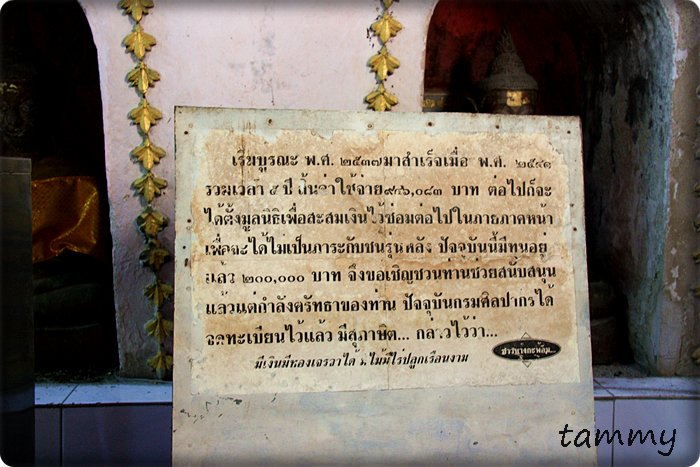 เริ่มบูรณะ พ.ศ. ๒๕๓๗มาสำเร็จเมื่อ พ.ศ. ๒๕๔๑
รวมเวลา ๕ ปี สิ้นค่าใช้จ่าย ๐๘๓ บาท ต่อไปก็จะ
ได้ตั้งมูลนิธิเพื่อสะสมเงินไว้ซ่อมต่อไปในภายภาคหน้า
เพื่อจะได้ไม่เป็นภาระกับชนรุ่นหลัง ปัจจุบันนี้มีทุนอยู่
แล้ว ๒๐๐,๐๐๐ บาท จึงขอเชิญชวนท่านช่วยสนับสนุน
แล้วแต่กำลังศรัทธาของท่าน ปัจจุบันกรมศิลปากรได้
จดทะเบียนไว้แล้ว มีสุภาษิต... กล่าวไว้ว่า...
มีเงินมีทองเจรจาได้ มีไม้มีไร่ปลูกเรือนงาม
ชาวบางกะพ้อม...
tammy